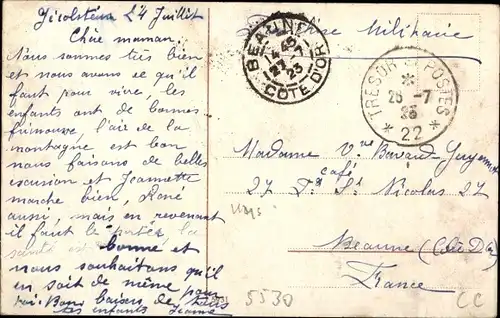 24 Juillet
Chère maman.
Nous sommes très bien
et nous avons ce qu'il
faut pour vivre, les
enfants ont de bonnes
frimousse, l'air de la
montagne est bon
nous faisons de belles
excursion et Jeannette
marche bien, René
aussi, mais en revenant
il faut le porter la
santé est bonne et
nous souhaitons qu'il
en soit de même pour
toi. Bons baisers de tous
tes enfants Jeanne
Militaire
BEAUNE
CÔTE D'OR
27-7
23
TRESOR ET POSTES
* 22 *
25-7
23
Madame Vve
café
27 Fg St Nicolas 27
Beaune (Côte D'or)
France
5530
CC